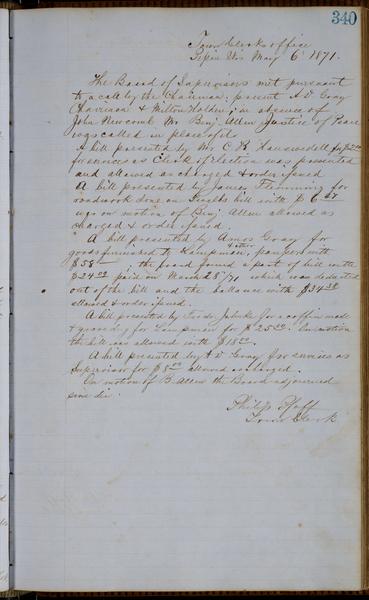 340
Town Clerks office
Pepin Wis May 6' 1871.
The Board of Supervisors met pursuant
to a call by the Chairman; present A. D. Gray
Chairman & Milton Holden, in absence of
John Newcomb Mr Benj. Allen Justice of Peace
was called in place of it
A bill presented by Mr C. R. for $2.00
for services as Clerk of Election was presented
and allowed as charged & ordered
A bill presented by James Flemming for
roadwork done on hill with $ 6
was on motion of Benj Allen allowed as
charged & ordered
A bill presented by Amos Gray for
goods furnished to & other paupers with
$58 — the board found a part of bill with
$24.00 paid on March 28'/71 which was deducted
out of the bill and the ballance with $34.38
allowed & ordered
A bill presented by for a coffin made
& grave dug for for $25.00. On motion
the bill was allowed with $18.00.
A bill presented by A D Gray for services as
Supervisor for $8.00 allowed as charged.
On motion of B. Allen the Board adjourned
sine die.
Philip Pfaff
Town Clerk